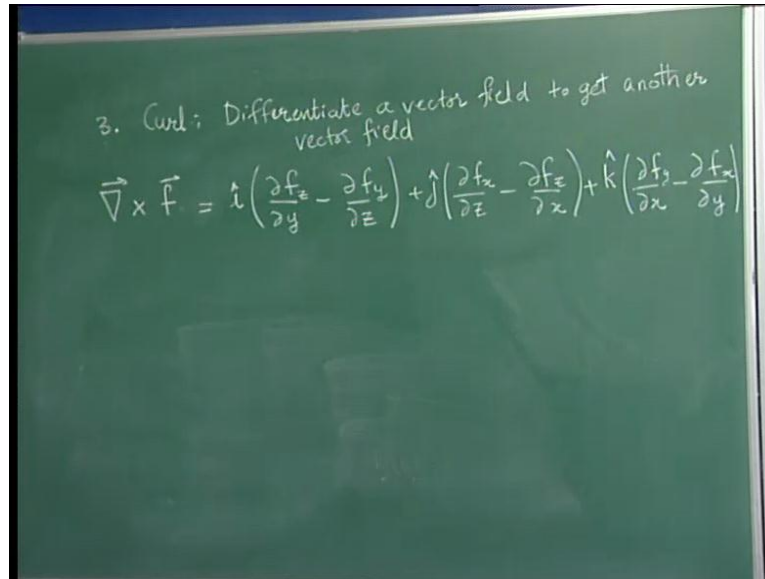 3. Curl: Differentiate a vector field to get another
vector field
$\vec{\nabla} \times \vec{f} = \hat{i}\left(\frac{\partial f_z}{\partial y} - \frac{\partial f_y}{\partial z}\right) + \hat{j}\left(\frac{\partial f_x}{\partial z} - \frac{\partial f_z}{\partial x}\right) + \hat{k}\left(\frac{\partial f_y}{\partial x} - \frac{\partial f_x}{\partial y}\right)$